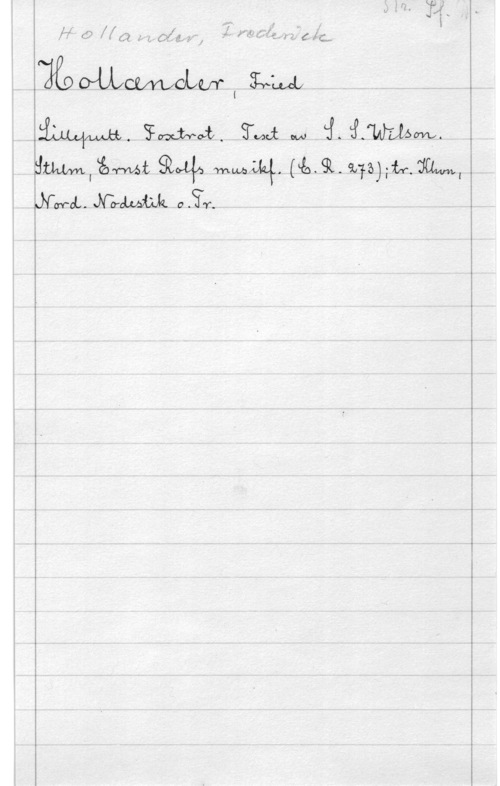 Hollander, Frederick
Hollænder, Fried
Lilleputt. Foxtrot. Text av S. S. Wilson.
Sthlm, Ernst Rolfs musikf. (E. R. 273); tr. Khvn,
Nord. Nodestik o. Tr.